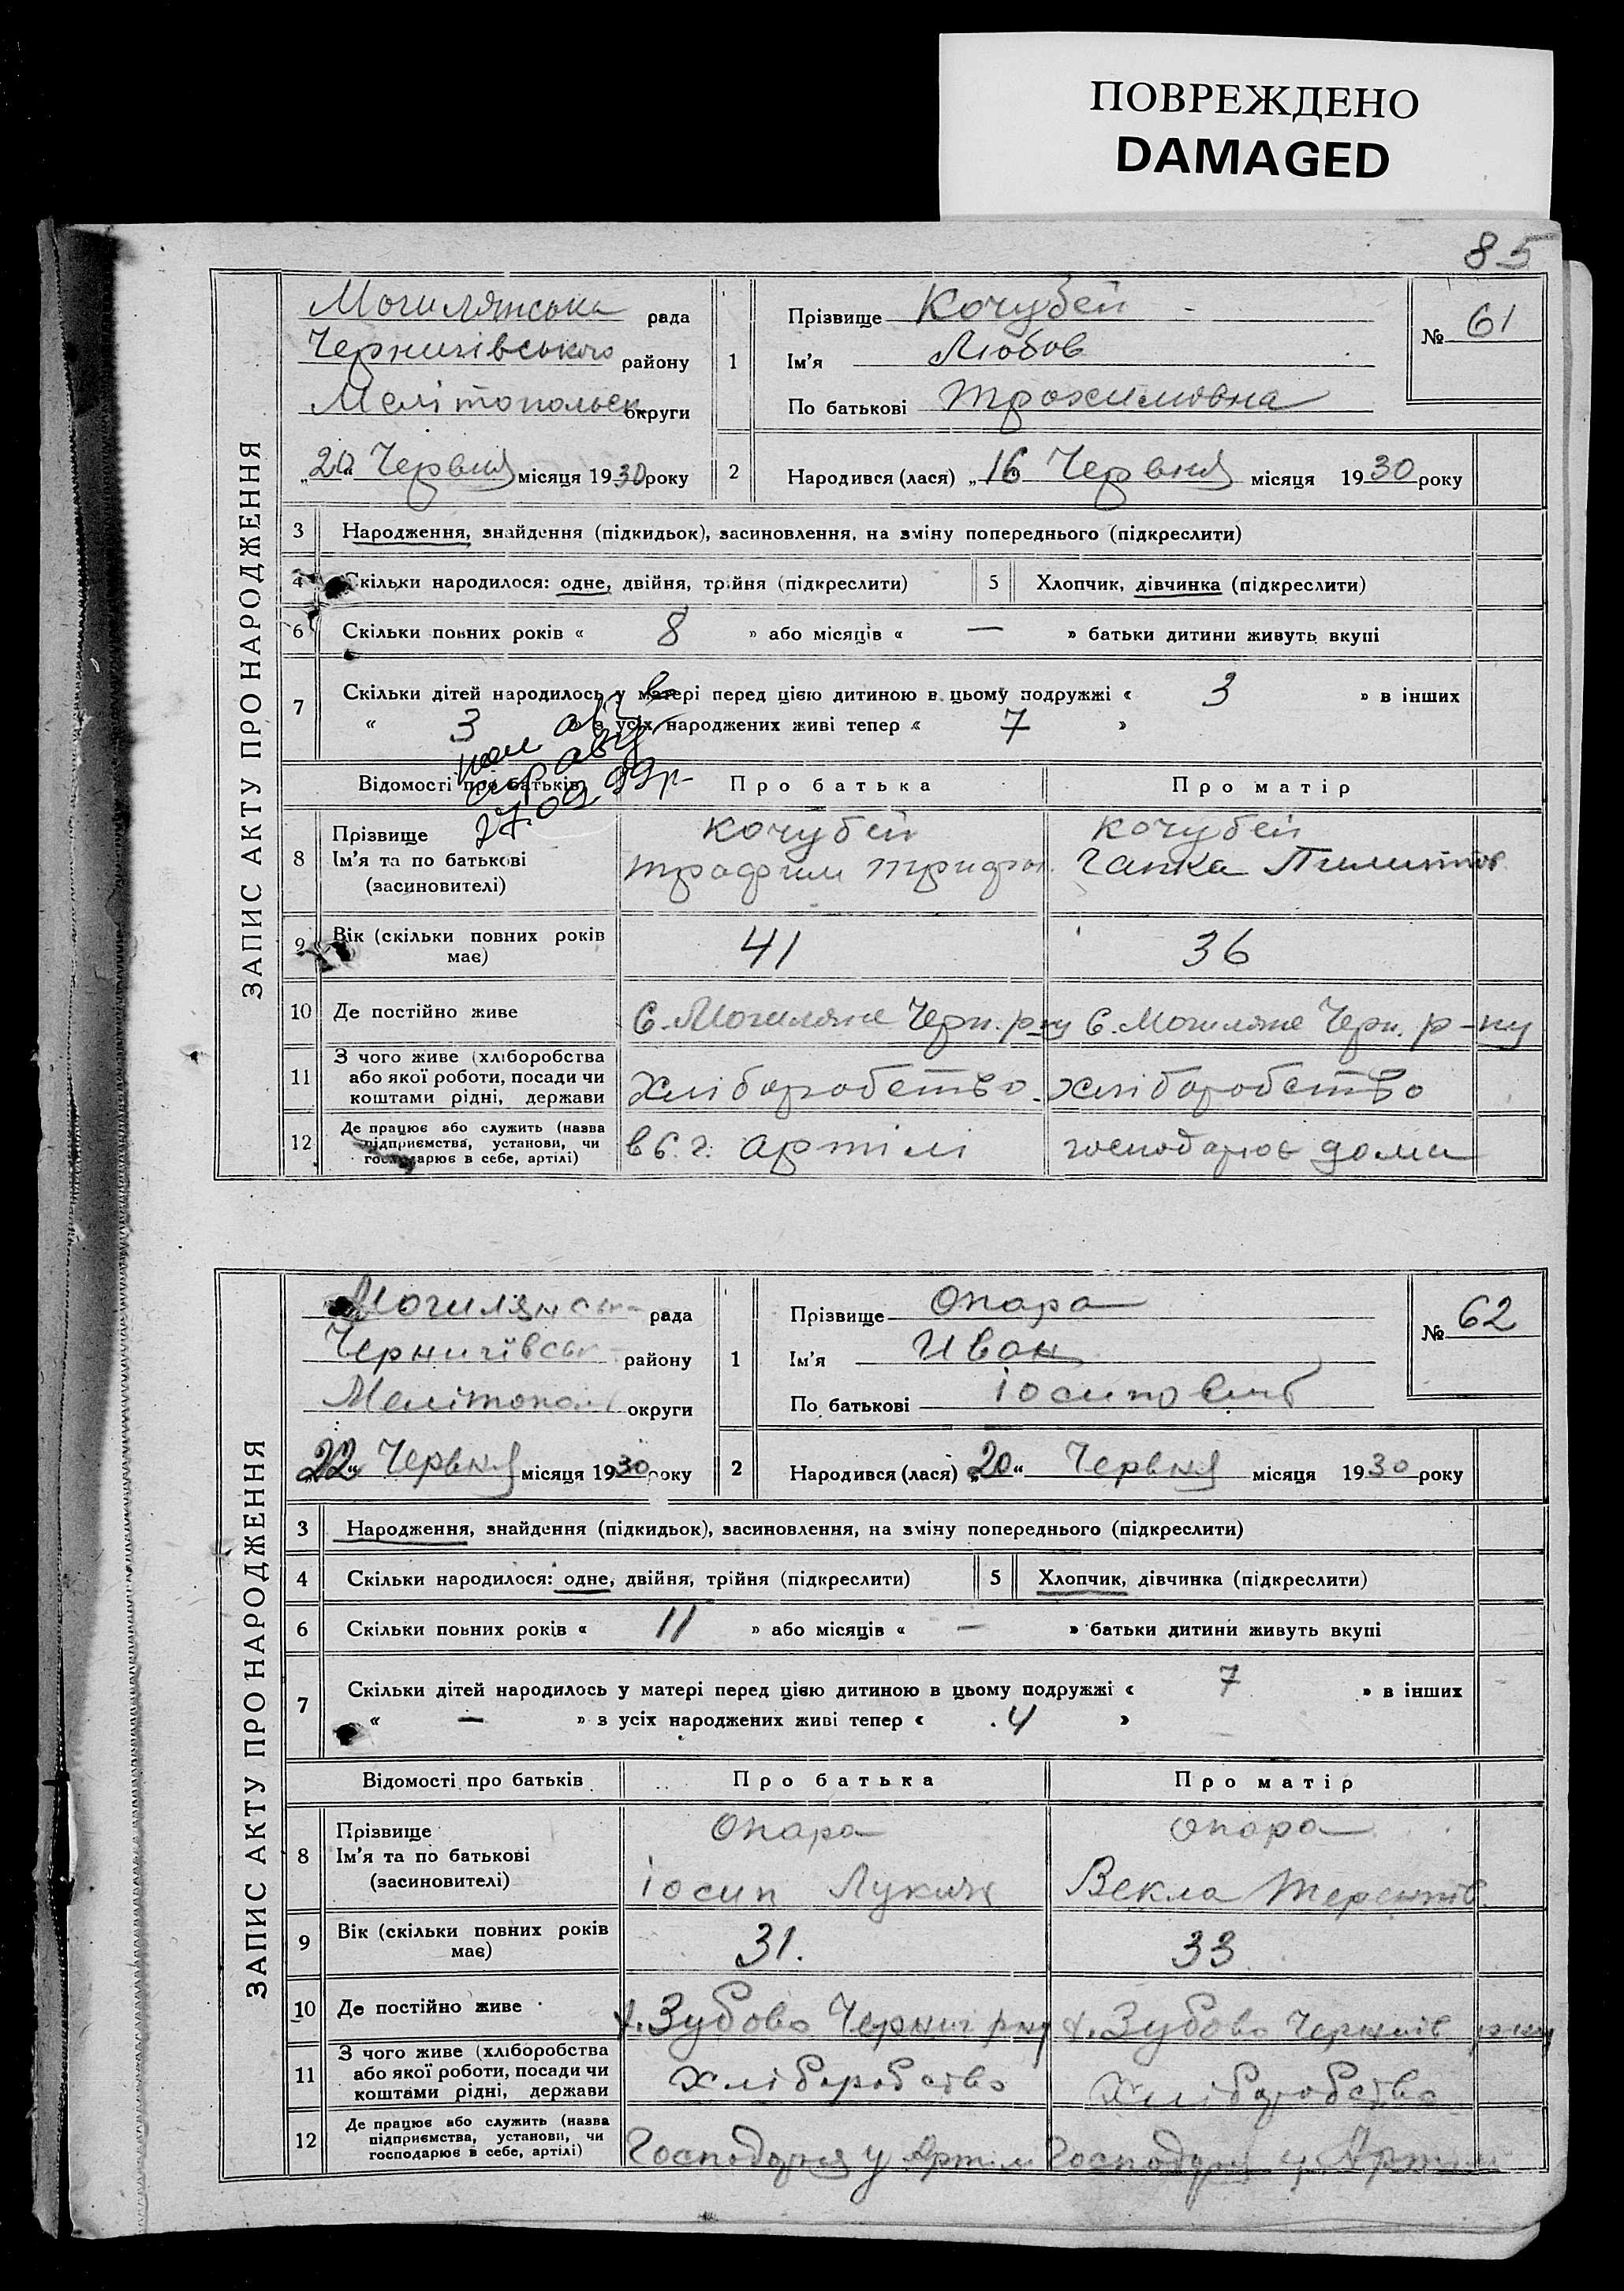 ПОВРЕЖДЕНО
DAMAGED
85
ЗАПИС АКТУ ПРО НАРОДЖЕННЯ
Могилянська рада
Чернигівського району
Мелітопольськ округи
„20“ Червня місяця 1930 року
1
Прізвище Кочубей
Ім'я Любов
По батькові Трохимовна
№ 61
2 Народився (лася) „16“ Червня місяця 1930 року
3 Народження, знайдення (підкидьок), засиновлення, на зміну попереднього (підкреслити)
4 Скільки народилося: одне, двійня, трійня (підкреслити) 5 Хлопчик, дівчинка (підкреслити)
6 Скільки повних років « 8 » або місяців « — » батьки дитини живуть вкупі
7 Скільки дітей народилось у матері перед цією дитиною в цьому подружжі « 3 » в інших
« 3 » з усіх народжених живі тепер « 7 »
27 09 99р-
Відомості про батьків Про батька Про матір
8 Прізвище Кочубей Кочубей
Ім'я та по батькові Трофим Трифон. Гапка Пилипов
(засиновителі)
9 Вік (скільки повних років має) 41 36
10 Де постійно живе С. Могиляне Черн. р-ну С. Могиляне Черн. р-ну
11 З чого живе (хліборобства
або якої роботи, посади чи
коштами рідні, держави Хліборобство. Хліборобство
12 Де працює або служить (назва
підприємства, установи, чи
господарює в себе, артілі) в С. г. артілі господарює дома
ЗАПИС АКТУ ПРО НАРОДЖЕННЯ
Могилянськ- рада
Чернигівськ- району
Мелітопол округи
„22“ Червня місяця 1930 року
1
Прізвище Опара
Ім'я Иван
По батькові Іосипович
№ 62
2 Народився (лася) „20“ Червня місяця 1930 року
3 Народження, знайдення (підкидьок), засиновлення, на зміну попереднього (підкреслити)
4 Скільки народилося: одне, двійня, трійня (підкреслити) 5 Хлопчик, дівчинка (підкреслити)
6 Скільки повних років « 11 » або місяців « — » батьки дитини живуть вкупі
7 Скільки дітей народилось у матері перед цією дитиною в цьому подружжі « 7 » в інших
« — » з усіх народжених живі тепер « 4 »
Відомості про батьків Про батька Про матір
8 Прізвище Опара Опара
Ім'я та по батькові Іосип Лукич Векла Терентів.
(засиновителі)
9 Вік (скільки повних років має) 31. 33
10 Де постійно живе х. Зубово Черниг рну х. Зубово Чернигів рну
11 З чого живе (хліборобства
або якої роботи, посади чи
коштами рідні, держави Хліборобство Хліборобство
12 Де працює або служить (назва
підприємства, установи, чи
господарює в себе, артілі) Господарня у Артіли Господарня у Артіли